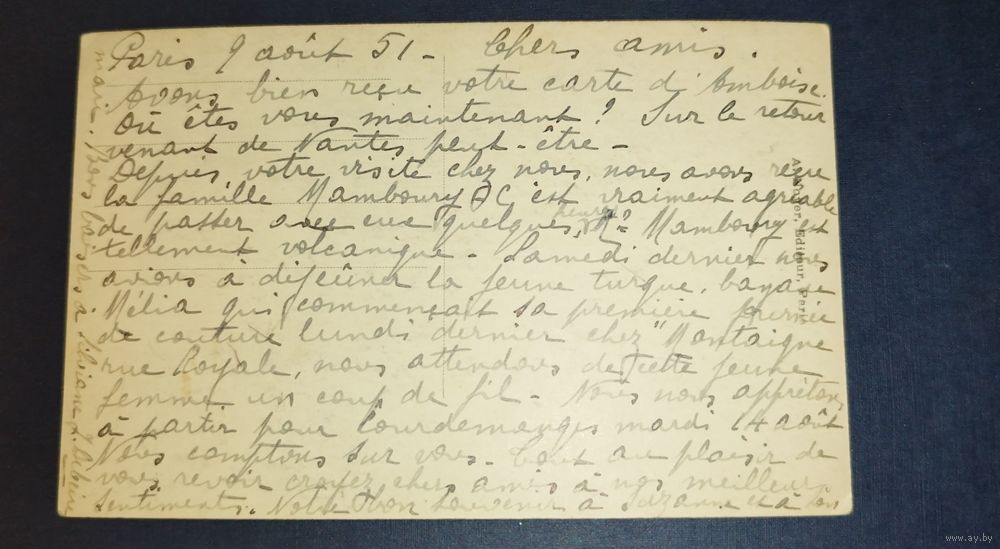 Paris 9 août 51 - Chers amis.
Avons bien reçu votre carte d'Amboise.
Où êtes vous maintenant ? Sur le retour
venant de Nantes peut-être -
Depuis votre visite chez nous, nous avons reçu
la famille Mamboury C'est vraiment agréable
de passer avec eux quelques heures. Mr Mamboury est
tellement volcanique - Samedi dernier nous
avions à déjeûner la jeune turque,
Mélia qui commençait sa première journée
de couture lundi dernier chez "Montaigne
rue Royale, nous attendons de cette jeune
femme un coup de fil - Nous nous apprêtons
à partir pour Courdemanges mardi 14 août
Nous comptons sur vous - Tout au plaisir de
vous revoir croyez chers amis à nos meilleurs
sentiments. Notre bon souvenir à Suzanne et à son
mari. Bons baisers à Liliane
Editeur, Paris
www.ay.by